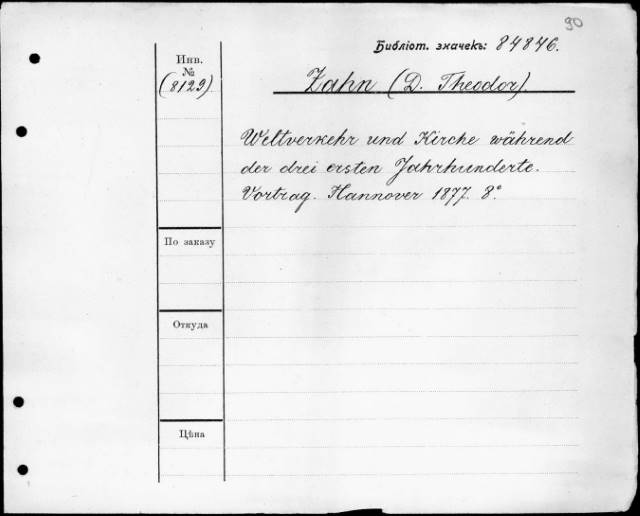 90
Библіот. значекъ: 84846.
Инв.
№
(8129)
Zahn (D. Theodor).
Weltverkehr und Kirche während
der drei ersten Jahrhunderte.
Vortrag. Hannover 1877. 8°
По заказу
Откуда
Цѣна